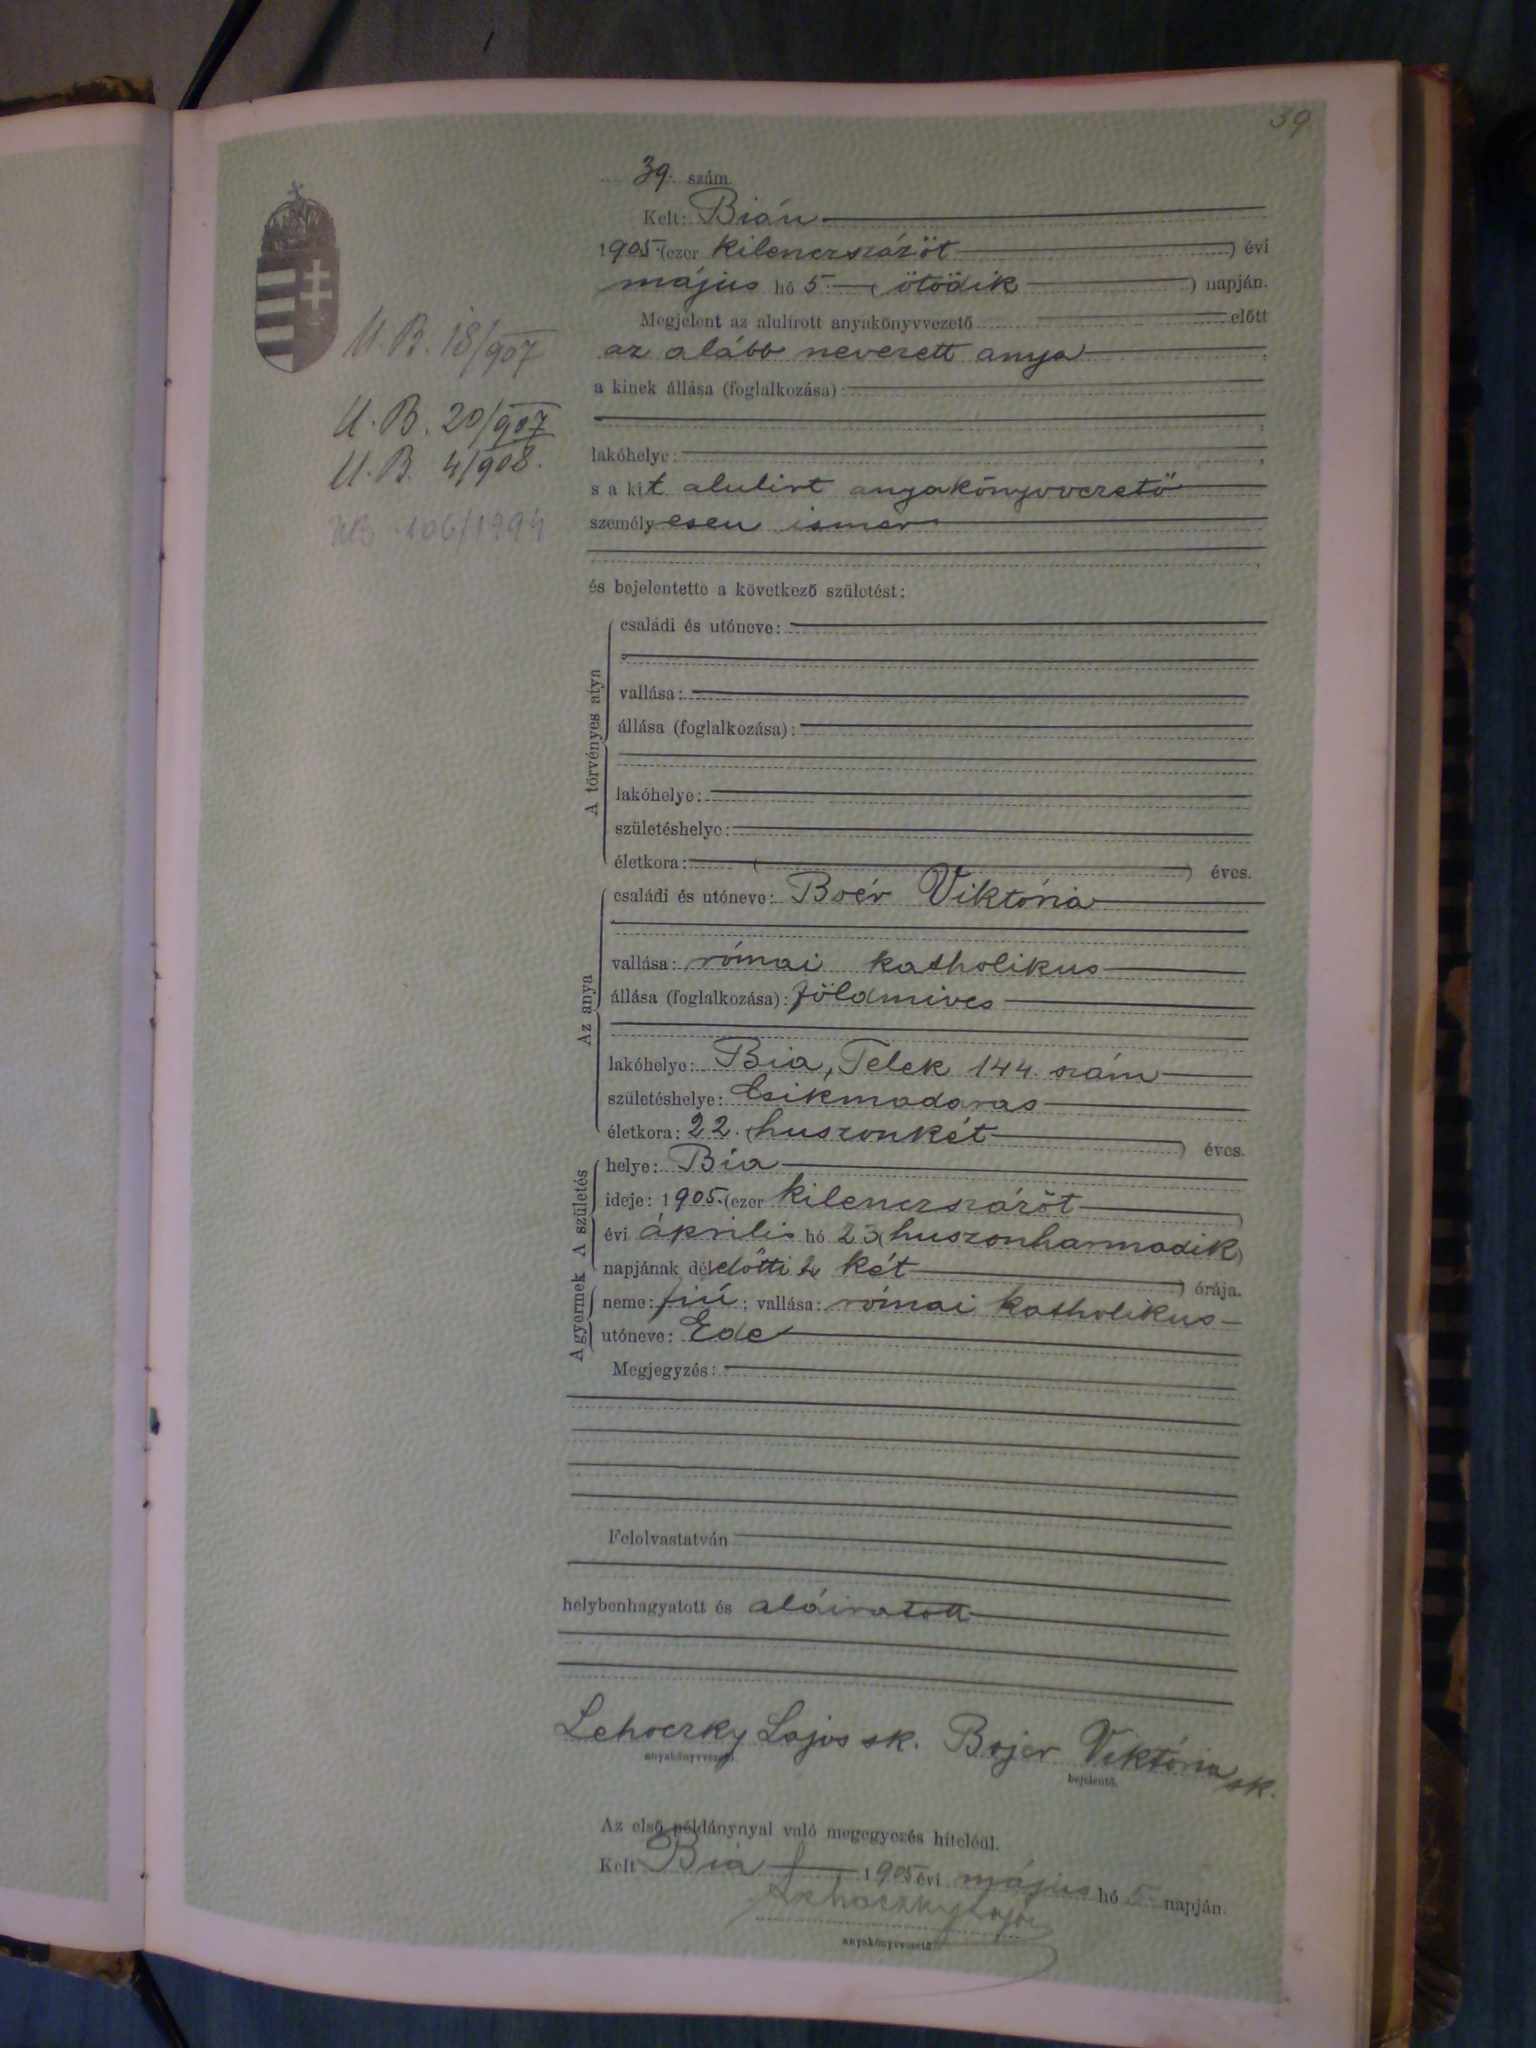 39.
39. szám.
Kelt: Bián
1905. (ezer kilenczszázöt) évi
május hó 5 (ötödik) napján.
Megjelent az alulírott anyakönyvvezető előtt
az alább nevezett anya
a kinek állása (foglalkozása):
U.B. 18/907
U.B. 20/907
U.B. 4/908.
UB 106/1994
lakóhelye:
s a kit alulirt anyakönyvvezető
személyesen ismer
és bejelentette a következő születést:
A törvényes atya
családi és utóneve:
vallása:
állása (foglalkozása):
lakóhelye:
születéshelye:
életkora: ( ) éves.
Az anya
családi és utóneve: Boér Viktória
vallása: római katholikus
állása (foglalkozása): földmives
lakóhelye: Bia, Telek 144. szám
születéshelye: Csikmadaras
életkora: 22. (huszonkét) éves.
A születés
helye: Bia
ideje: 1905. (ezer kilenczszázöt)
évi április hó 23 (huszonharmadik)
napjának délelőtti 2 két) órája.
A gyermek
neme: fiú; vallása: római katholikus
utóneve: Ede
Megjegyzés:
Felolvastatván
helybenhagyatott és aláiratott
Lehoczky Lajos sk. Bojer Viktória sk.
anyakönyvvezető. bejelentő.
Az első példánynyal való megegyezés hiteléül.
Kelt Bia 1905 évi május hó 5. napján.
Lehoczky Lajos
anyakönyvvezető